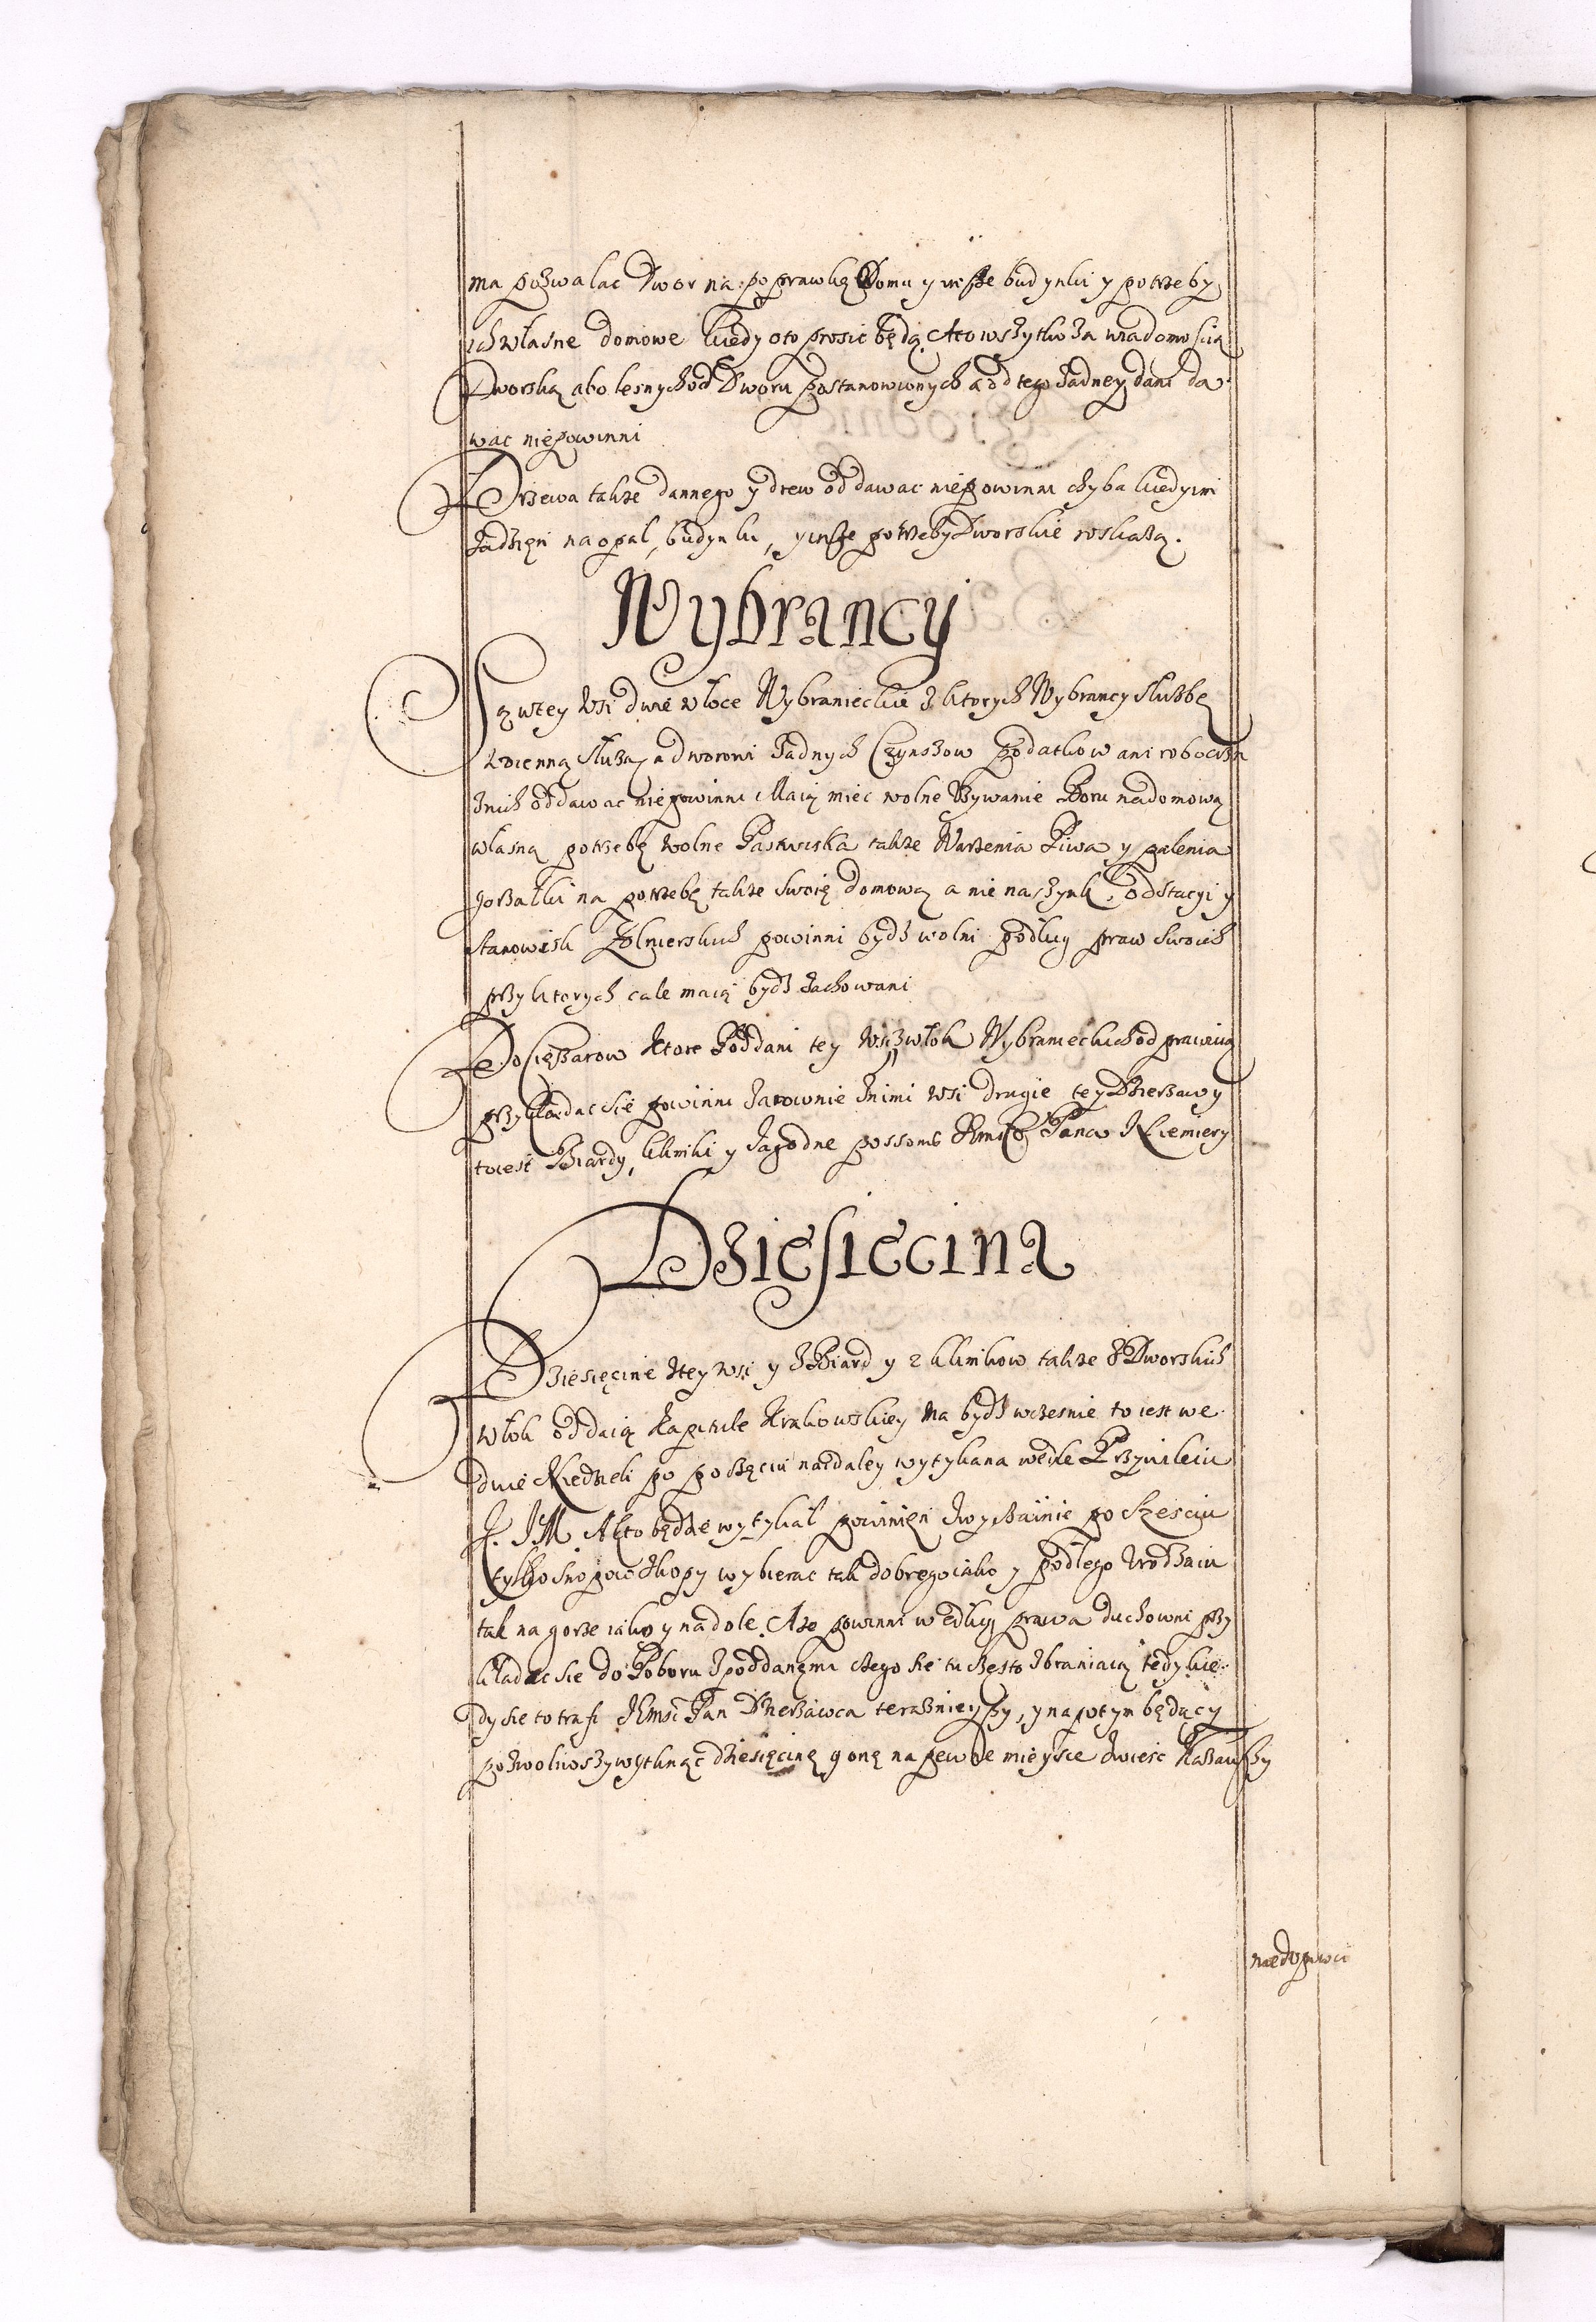 ma pozwalac Dwor na poprawkę Domu y insze budynki y potrzeby
ich własne domowe kiedy oto prosic będą. Ato wszytko za wiadomoscią
Dworską abo lesnych od Dworu postanowionych a od tego żadney dani da
wac niepowinni
Drzewa także dannego y drew oddawac niepowinni chyba kiedy im
Jadzięn na opał, budynki, y insze potrzeby Dworskie roskażą.
Wybrancy
Są w tey wsi dwie włoce Wybranieckie z ktorych Wybrancy służbę
woienną służą, a dworowi żadnych Czynszow podatkow ani robocizn
znich oddawac niepowinni Maią miec wolne Używanie Boru na domową
własną potrzebę wolne Pastwiska także Warzenia Piwa y palenia
gorzałki na potrzebę także swoię domową a nie na szynk, od stacyi y
stanowisk Żołnierskich powinni bydź wolni podług praw swoich
przy ktorych cale maią bydź zachowani
Do Ciężarow ktore Poddani tey wsi zwłok Wybranieckich odprawuią
przykładac się powinni zarownie znimi wsi drugie tey Dzierżawy
toiest Biardy, Klimki y Jagodne possoms Jmści Pana Niemiery
Dziesięcina
Dziesięcine ztey wsi y z Biard y z Klimkow także z Dworskich
włok oddaią Kapitule Krakowskiey Ma bydź wczesnie to iest we
dwie Niedzieli po pożęciu naydaley wytykana wedle Przywileiu
J. J M. A kto będzie wytykał powinięn zwyczainie po szesciu
tylko snopow z kopy wybierac tak dobrego iako y podłego urodzaiu
tak na gorze iako y na dole. Aże powinni według prawa duchowni przy
kładac się do Poboru z poddanęmi czego się tu często zbraniaią tedy kie
dy się to trafi Jmść Pan Dzierżawca terażnieyszy, y na potym będący
pozwoliwszy wytknąć dziesięcinę y onę na pewne mieysce zwieść kazawszy